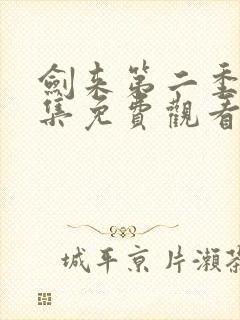 劍来第二季
集免費觀看
城平京片瀨